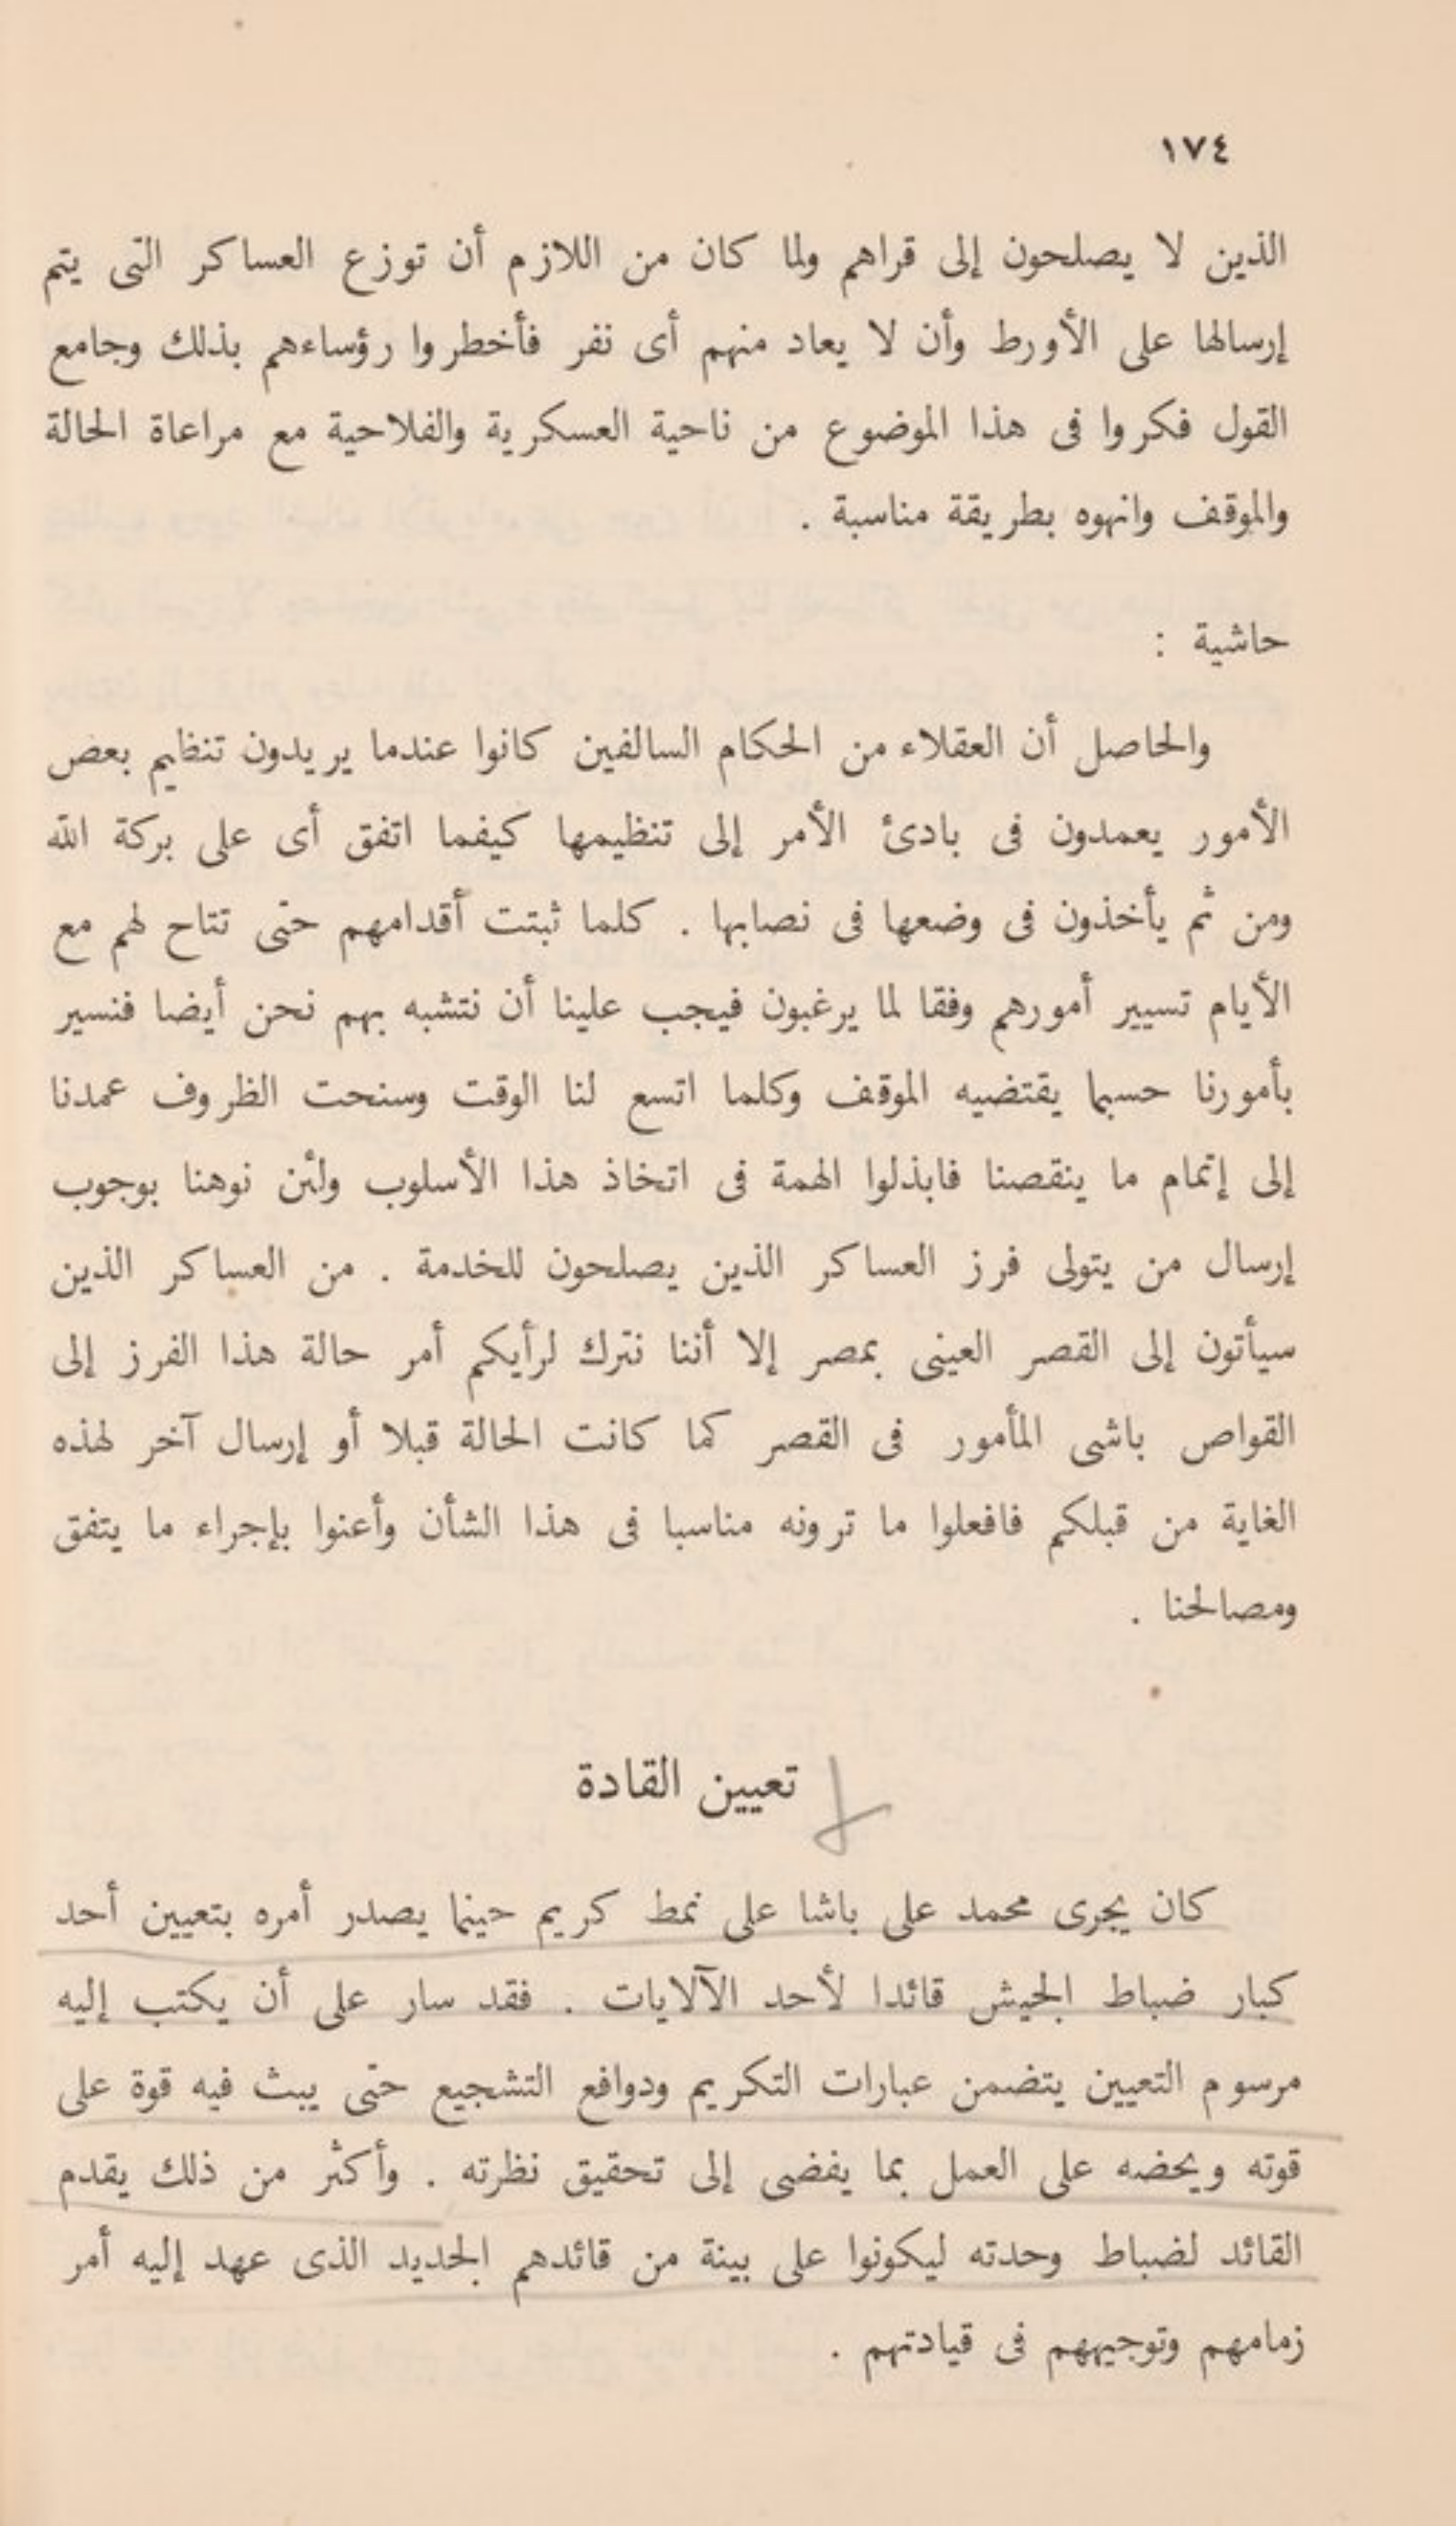 ١٧٤
الذين لا يصلحون إلى قراهم ولما كان من اللازم أن توزع العساكر التى يتم
إرسالها على الأورط وأن لا يعاد منهم أى نفر فأخطروا رؤساءهم بذلك وجامع
القول فكروا فى هذا الموضوع من ناحية العسكرية والفلاحية مع مراعاة الحالة
والموقف وانهوه بطريقة مناسبة .
حاشية :
والحاصل أن العقلاء من الحكام السالفين كانوا عندما يريدون تنظيم بعض
الأمور يعمدون فى بادئ الأمر إلى تنظيمها كيفما اتفق أى على بركة الله
ومن ثم يأخذون فى وضعها فى نصابها . كلما ثبتت أقدامهم حتى تتاح لهم مع
الأيام تسيير أمورهم وفقا لما يرغبون فيجب علينا أن نتشبه بهم نحن أيضا فنسير
بأمورنا حسبما يقتضيه الموقف وكلما اتسع لنا الوقت وسنحت الظروف عمدنا
إلى إتمام ما ينقصنا فابذلوا الهمة فى اتخاذ هذا الأسلوب ولئن نوهنا بوجوب
إرسال من يتولى فرز العساكر الذين يصلحون للخدمة . من العساكر الذين
سيأتون إلى القصر العينى بمصر إلا أننا نترك لرأيكم أمر حالة هذا الفرز إلى
القواص باشى المأمور فى القصر كما كانت الحالة قبلا أو إرسال آخر لهذه
الغاية من قبلكم فافعلوا ما ترونه مناسبا فى هذا الشأن وأعنوا بإجراء ما يتفق
ومصالحنا .
تعيين القادة
كان يجرى محمد على باشا على نمط كريم حينما يصدر أمره بتعيين أحد
كبار ضباط الجيش قائدا لأحد الآلايات . فقد سار على أن يكتب إليه
مرسوم التعيين يتضمن عبارات التكريم ودوافع التشجيع حتى يبث فيه قوة على
قوته ويحضه على العمل بما يفضى إلى تحقيق نظرته . وأكثر من ذلك يقدم
القائد لضباط وحدته ليكونوا على بينة من قائدهم الجديد الذى عهد إليه أمر
زمامهم وتوجيههم فى قيادتهم .